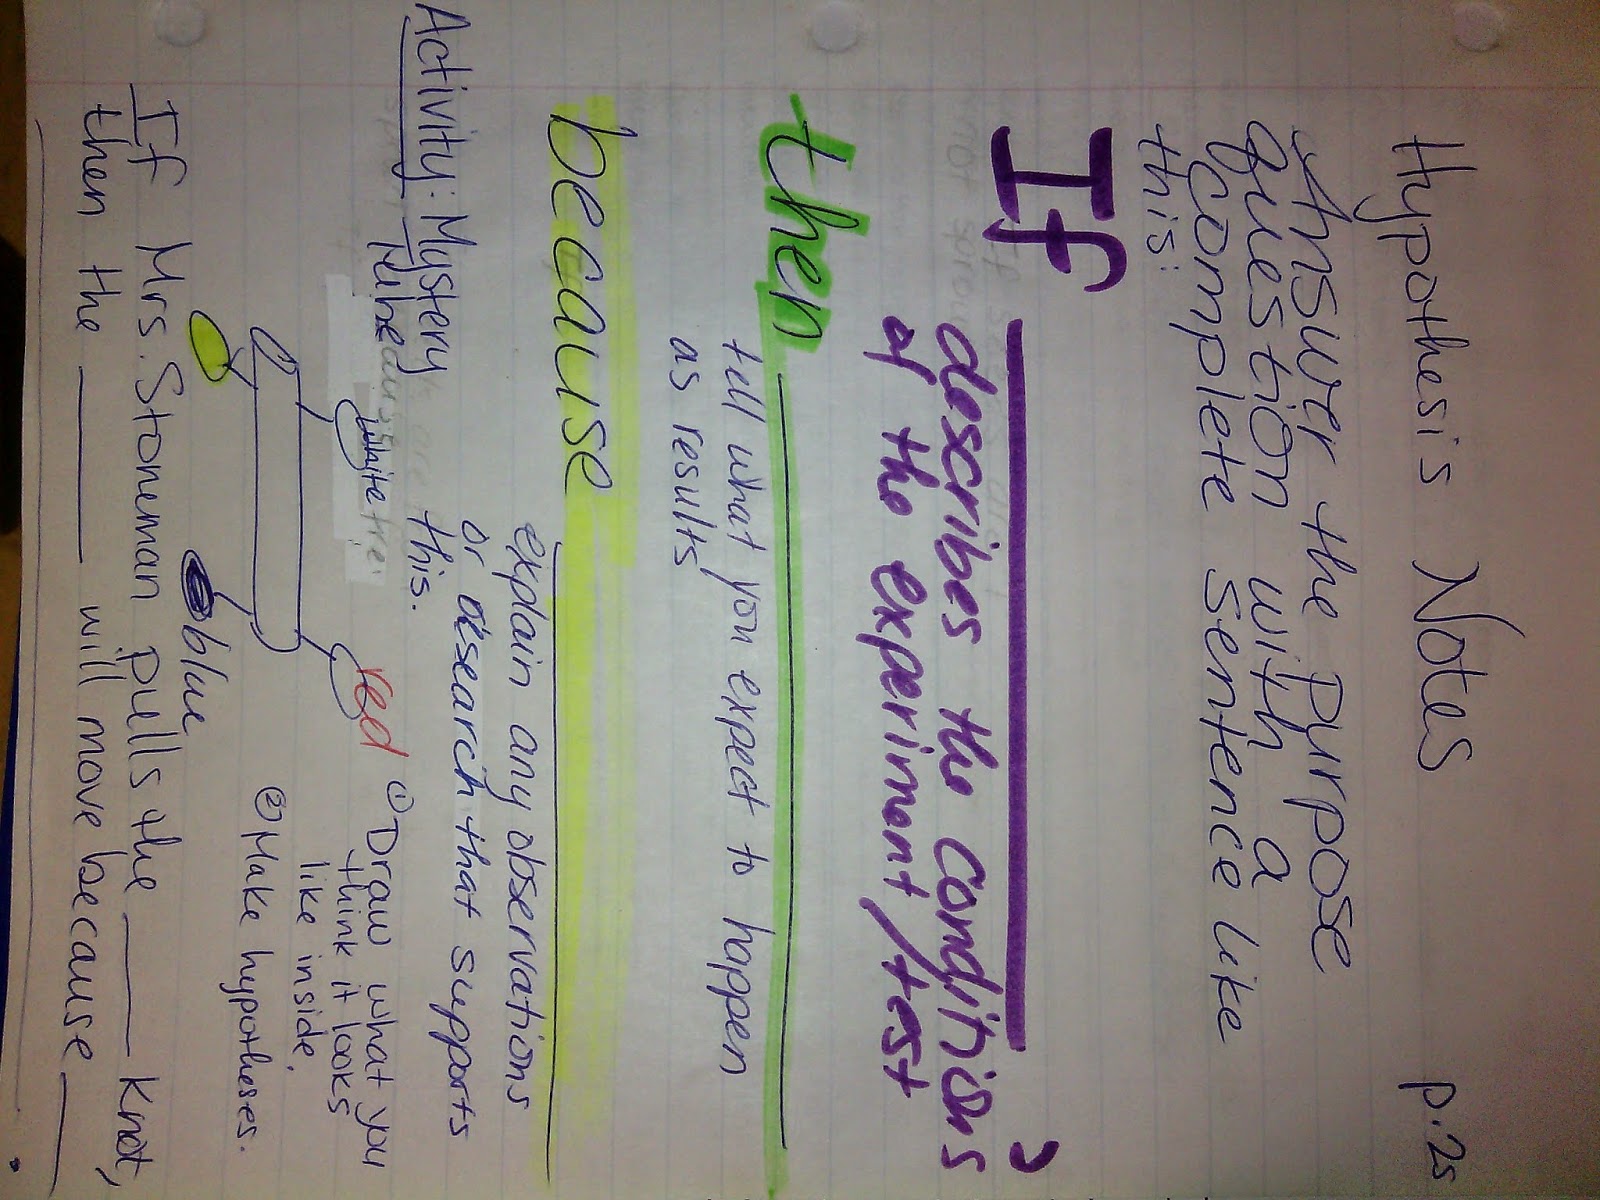 Hypothesis Notes p.25
Answer the purpose
question with a
complete sentence like
this:
If ,
describes the conditions
of the experiment/test
then
tell what you expect to happen
as results
because
explain any observations
or research that supports
this.
Activity: Mystery
Tube
white
red
blue
① Draw what you
think it looks
like inside.
② Make hypotheses.
If Mrs. Stoneman pulls the ____ knot,
then the ____ will move because ____
.